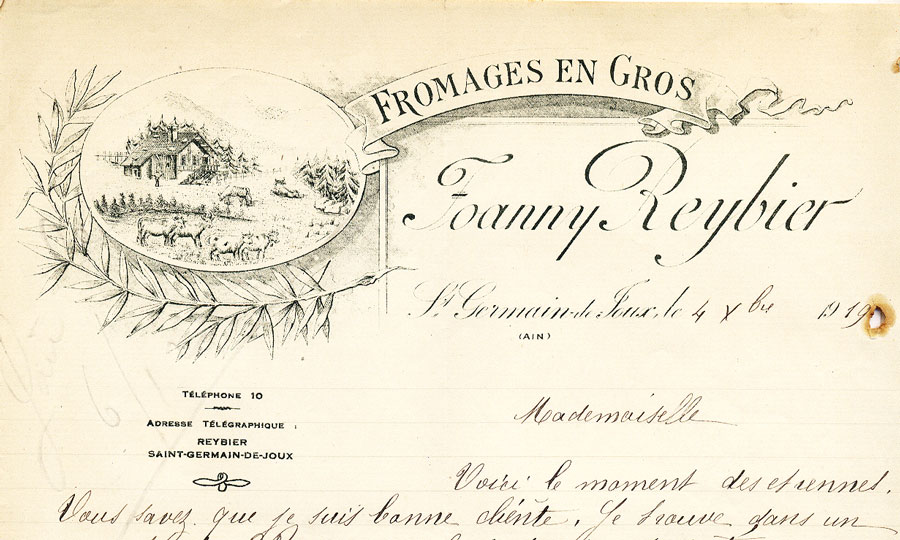 FROMAGES EN GROS
Joanny Reybier
St Germain-de-Joux, le 4 Xbre 1919
(AIN)
TÉLÉPHONE 10
ADRESSE TÉLÉGRAPHIQUE :
REYBIER
SAINT-GERMAIN-DE-JOUX
Mademoiselle
Voici le moment des etrennes.
Vous savez que je suis bonne cliente. Je trouve dans un